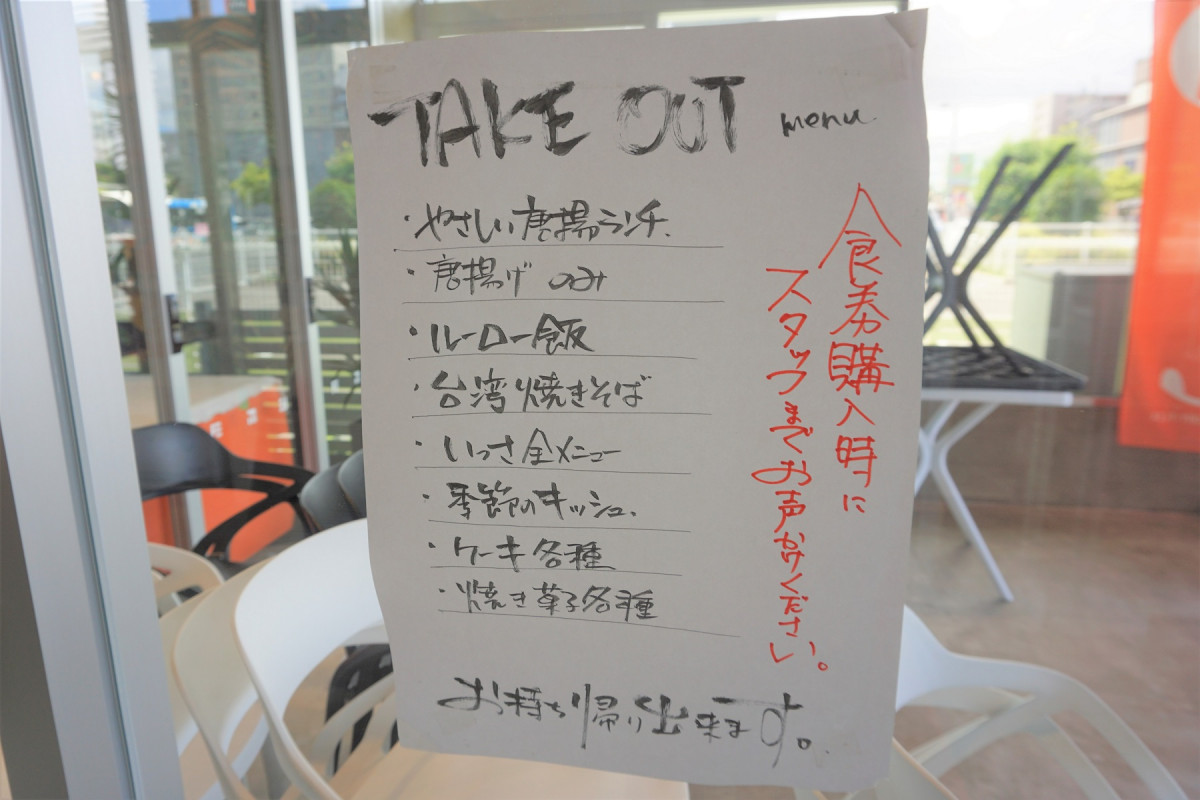 TAKE OUT menu.
・やさしい唐揚ランチ、
・唐揚げ のみ
・ルーロー飯
・台湾焼きそば
・いっさ全メニュー
・季節のキッシュ、
・ケーキ各種
・焼き菓子各種
お持ち帰り出来ます。
食券購入時に
スタッフまでお声かけください。